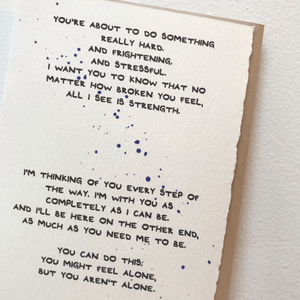 YOU'RE ABOUT TO DO SOMETHING
REALLY HARD.
AND FRIGHTENING.
AND STRESSFUL.
I WANT YOU TO KNOW THAT NO
MATTER HOW BROKEN YOU FEEL,
ALL I SEE IS STRENGTH.
I'M THINKING OF YOU EVERY STEP OF
THE WAY. I'M WITH YOU AS
COMPLETELY AS I CAN BE.
AND I'LL BE HERE ON THE OTHER END,
AS MUCH AS YOU NEED ME TO BE.
YOU CAN DO THIS:
YOU MIGHT FEEL ALONE,
BUT YOU AREN'T ALONE.